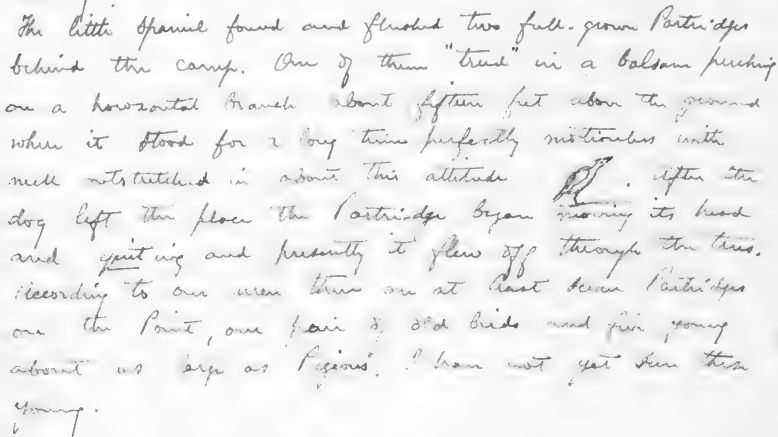 The little Spaniel found and flushed two full-grown Partridges
behind the camp. One of them "treed" in a balsam perching
on a horozontal branch about fifteen feet above the ground
where it stood for a long time perfectly motionless with
neck outstretched in about this attitude . After the
dog left the place the Partridge began moving its head
and quit ing and presently it flew off through the trees.
According to our men there are at least seven Partridges
on the Point, one pair of old birds and five young
about as large as Pigeons". I have not yet seen these
young.